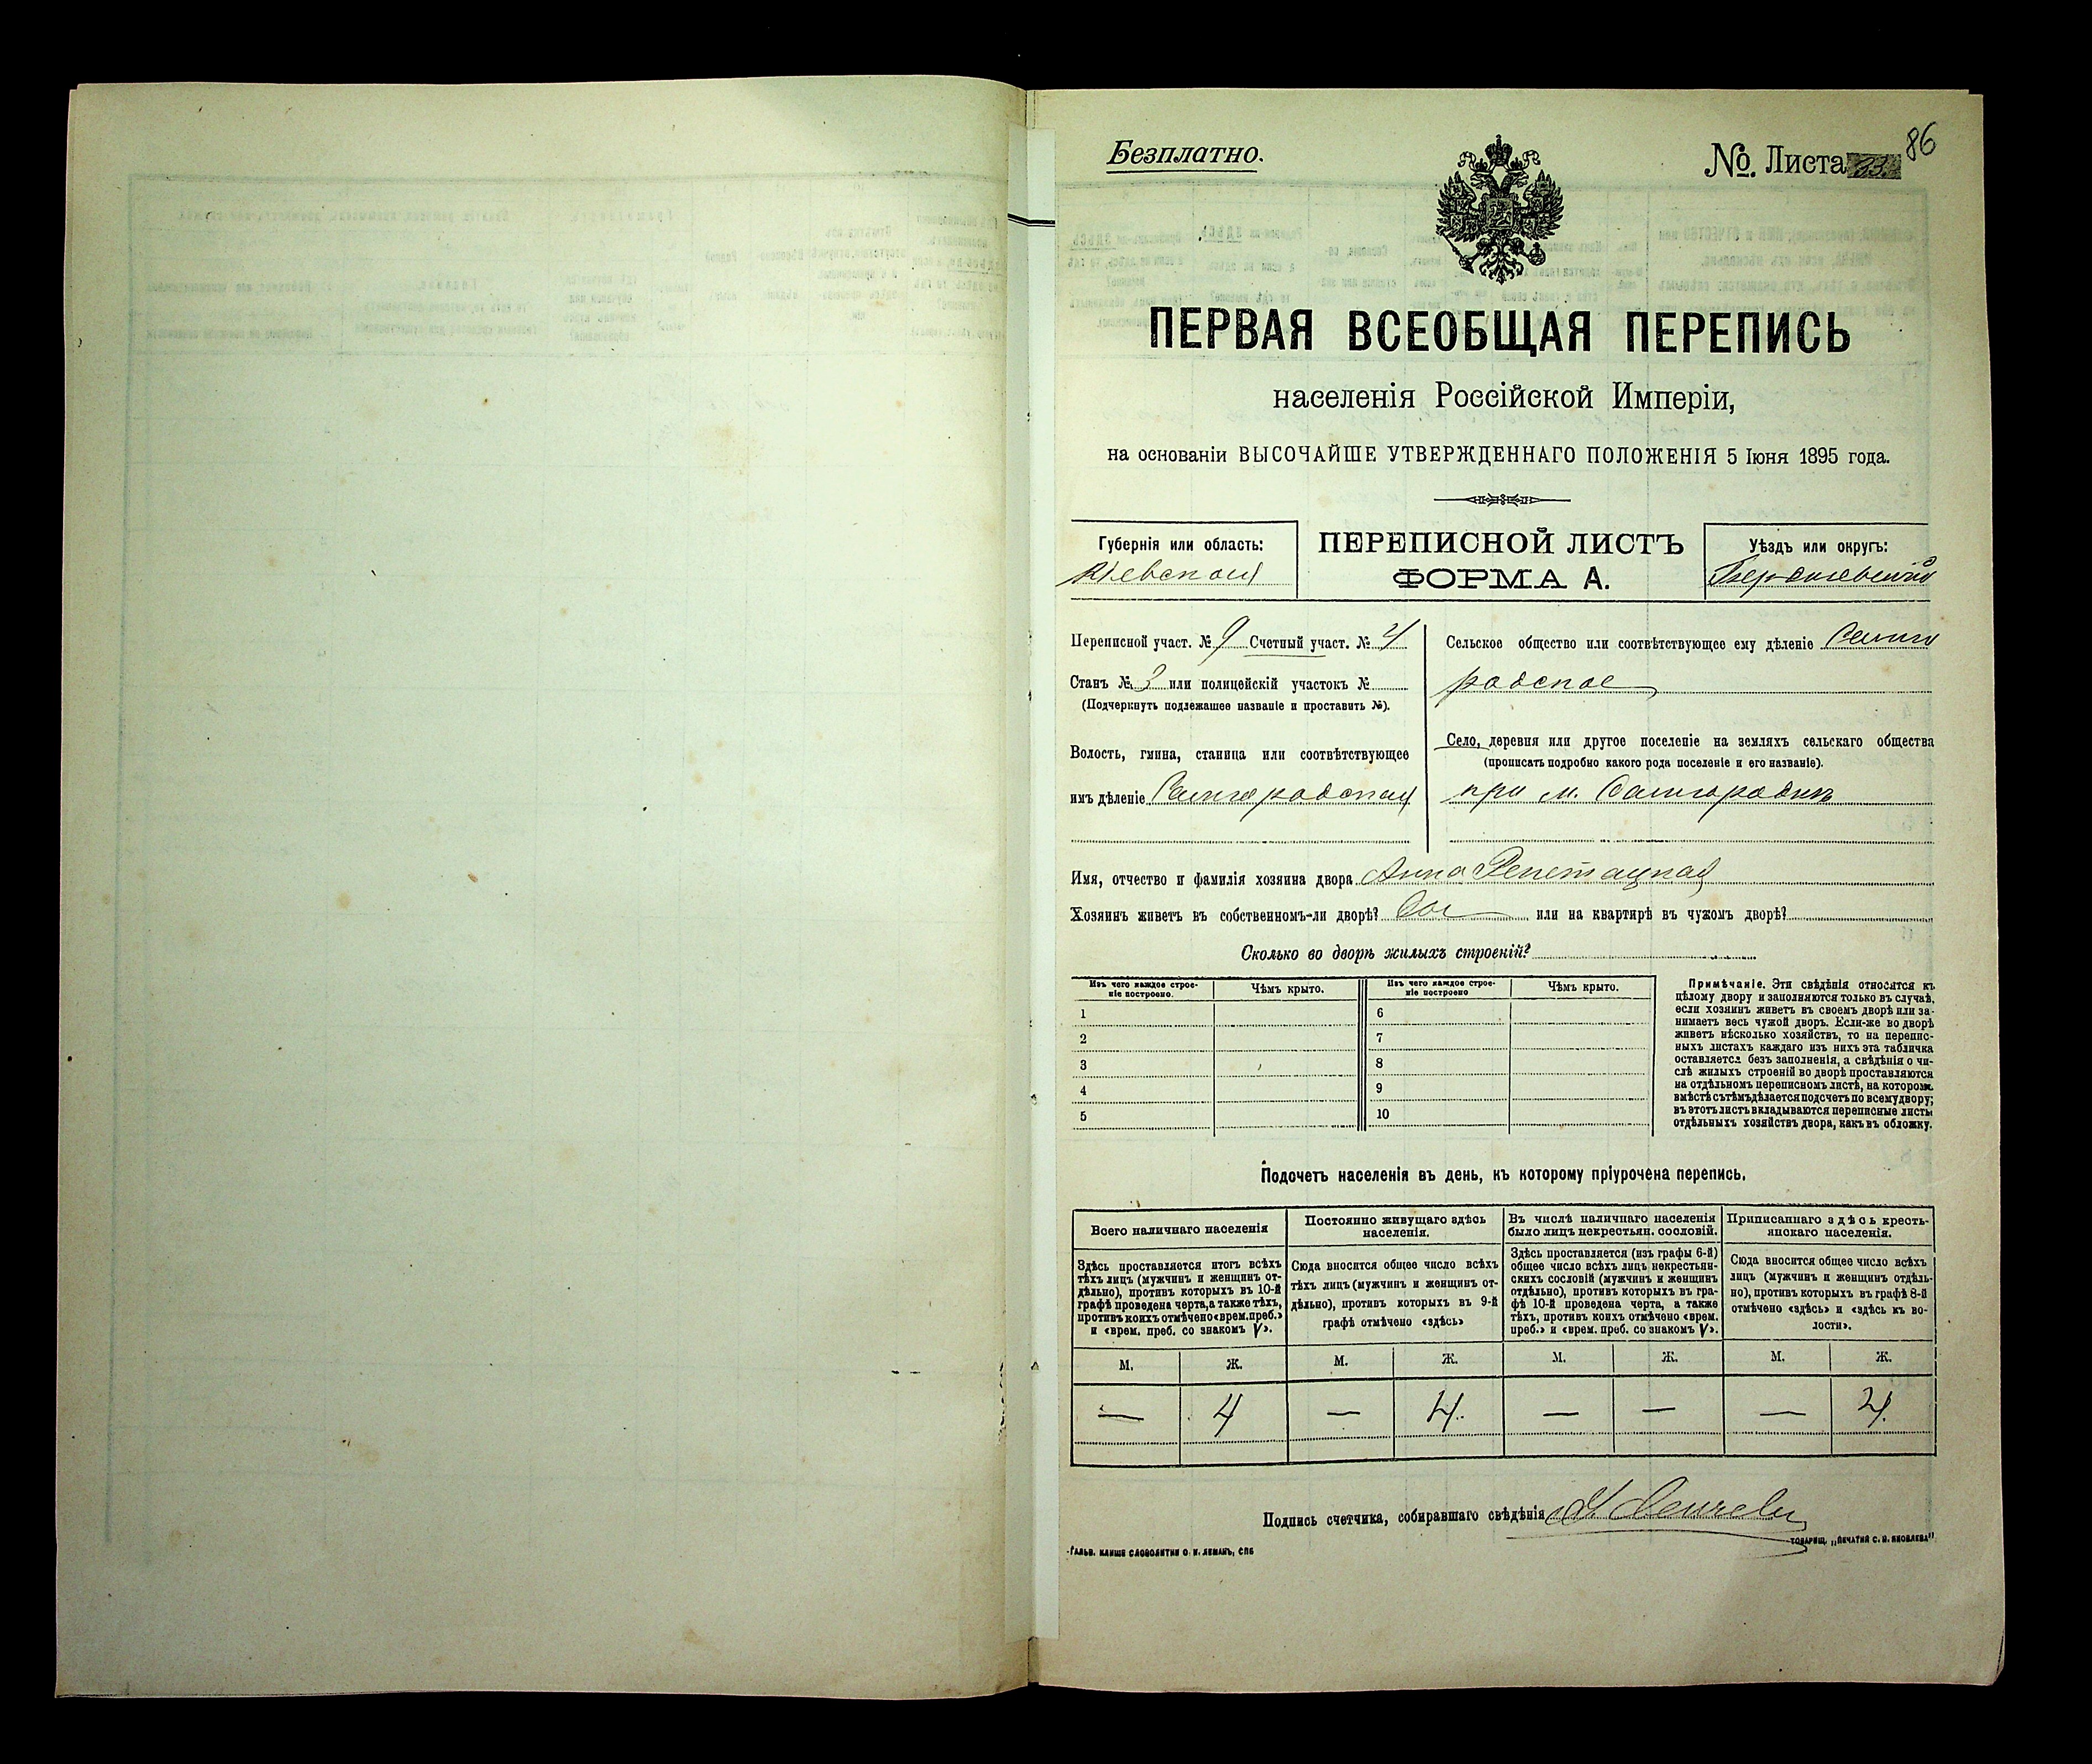 Безплатно.
№. Листа 33.
86
ПЕРВАЯ ВСЕОБЩАЯ ПЕРЕПИСЬ
населенія Россійской Имперіи,
на основаніи ВЫСОЧАЙШЕ УТВЕРЖДЕННАГО ПОЛОЖЕНІЯ 5 Іюня 1895 года.
Губернія или область:
Кіевская
ПЕРЕПИСНОЙ ЛИСТЪ
ФОРМА А.
Уѣздъ или округъ:
Бердичевскій
Переписной участ. № 9 Счетный участ. № 4
Станъ № 3 или полицейскій участокъ №
(Подчеркнуть подлежащее названіе и проставить №).
Волость, гмина, станица или соотвѣтствующее
имъ дѣленіе Самгородская
Сельское общество или соотвѣтствующее ему дѣленіе Самго
родское
Село, деревня или другое поселеніе на земляхъ сельскаго общества
(прописать подробно какого рода поселеніе и его названіе).
при м. Самгородкѣ
Имя, отчество и фамилія хозяина двора Анна
Хозяинъ живетъ въ собственномъ-ли дворѣ? или на квартирѣ въ чужомъ дворѣ?
Сколько во дворѣ жилыхъ строеній?
Изъ чего каждое строе-
ніе построено.
Чѣмъ крыто.
Изъ чего каждое строе-
ніе построено
Чѣмъ крыто.
1
6
2
7
3
8
4
9
5
10
Примѣчаніе. Эти свѣдѣнія относятся къ
цѣлому двору и заполняются только въ случаѣ,
если хозяинъ живетъ въ своемъ дворѣ или за-
нимаетъ весь чужой дворъ. Если-же во дворѣ
живетъ нѣсколько хозяйствъ, то на перепис-
ныхъ листахъ каждаго изъ нихъ эта табличка
оставляется безъ заполненія, а свѣдѣнія о чи-
слѣ жилыхъ строеній во дворѣ проставляются
на отдѣльномъ переписномъ листѣ, на которомъ
вмѣстѣ съ тѣмъ дѣлается подсчетъ по всему двору;
въ этотъ листъ вкладываются переписные листы
отдѣльныхъ хозяйствъ двора, какъ въ обложку.
Подсчетъ населенія въ день, къ которому пріурочена перепись.
Всего наличнаго населенія
Здѣсь проставляется итогъ всѣхъ
тѣхъ лицъ (мужчинъ и женщинъ от-
дѣльно), противъ которыхъ въ 10-й
графѣ проведена черта, а также тѣхъ,
противъ коихъ отмѣчено «врем. преб.»
и «врем. преб. со знакомъ V».
Постоянно живущаго здѣсь
населенія.
Сюда вносится общее число всѣхъ
тѣхъ лицъ (мужчинъ и женщинъ от-
дѣльно), противъ которыхъ въ 9-й
графѣ отмѣчено «здѣсь»
Въ числѣ наличнаго населенія
было лицъ некрестьян. сословій.
Здѣсь проставляется (изъ графы 6-й)
общее число всѣхъ лицъ некрестьян-
скихъ сословій (мужчинъ и женщинъ
отдѣльно), противъ которыхъ въ гра-
фѣ 10-й проведена черта, а также
тѣхъ, противъ коихъ отмѣчено «врем.
преб.» и «врем. преб. со знакомъ V».
Приписаннаго здѣсь кресть-
янскаго населенія.
Сюда вносится общее число всѣхъ
лицъ (мужчинъ и женщинъ отдѣль-
но), противъ которыхъ въ графѣ 8-й
отмѣчено «здѣсь» и «здѣсь къ во-
лости».
М. Ж. М. Ж. М. Ж. М. Ж.
— 4 — 4. — — — 4.
Подпись счетчика, собиравшаго свѣдѣнія
ГАЛЬВ. КЛИШЕ СЛОВОЛИТНИ О. И. ЛЕМАНЪ, СПБ
ТОВАРИЩ. „ПЕЧАТНЯ С. П. ЯКОВЛЕВА"